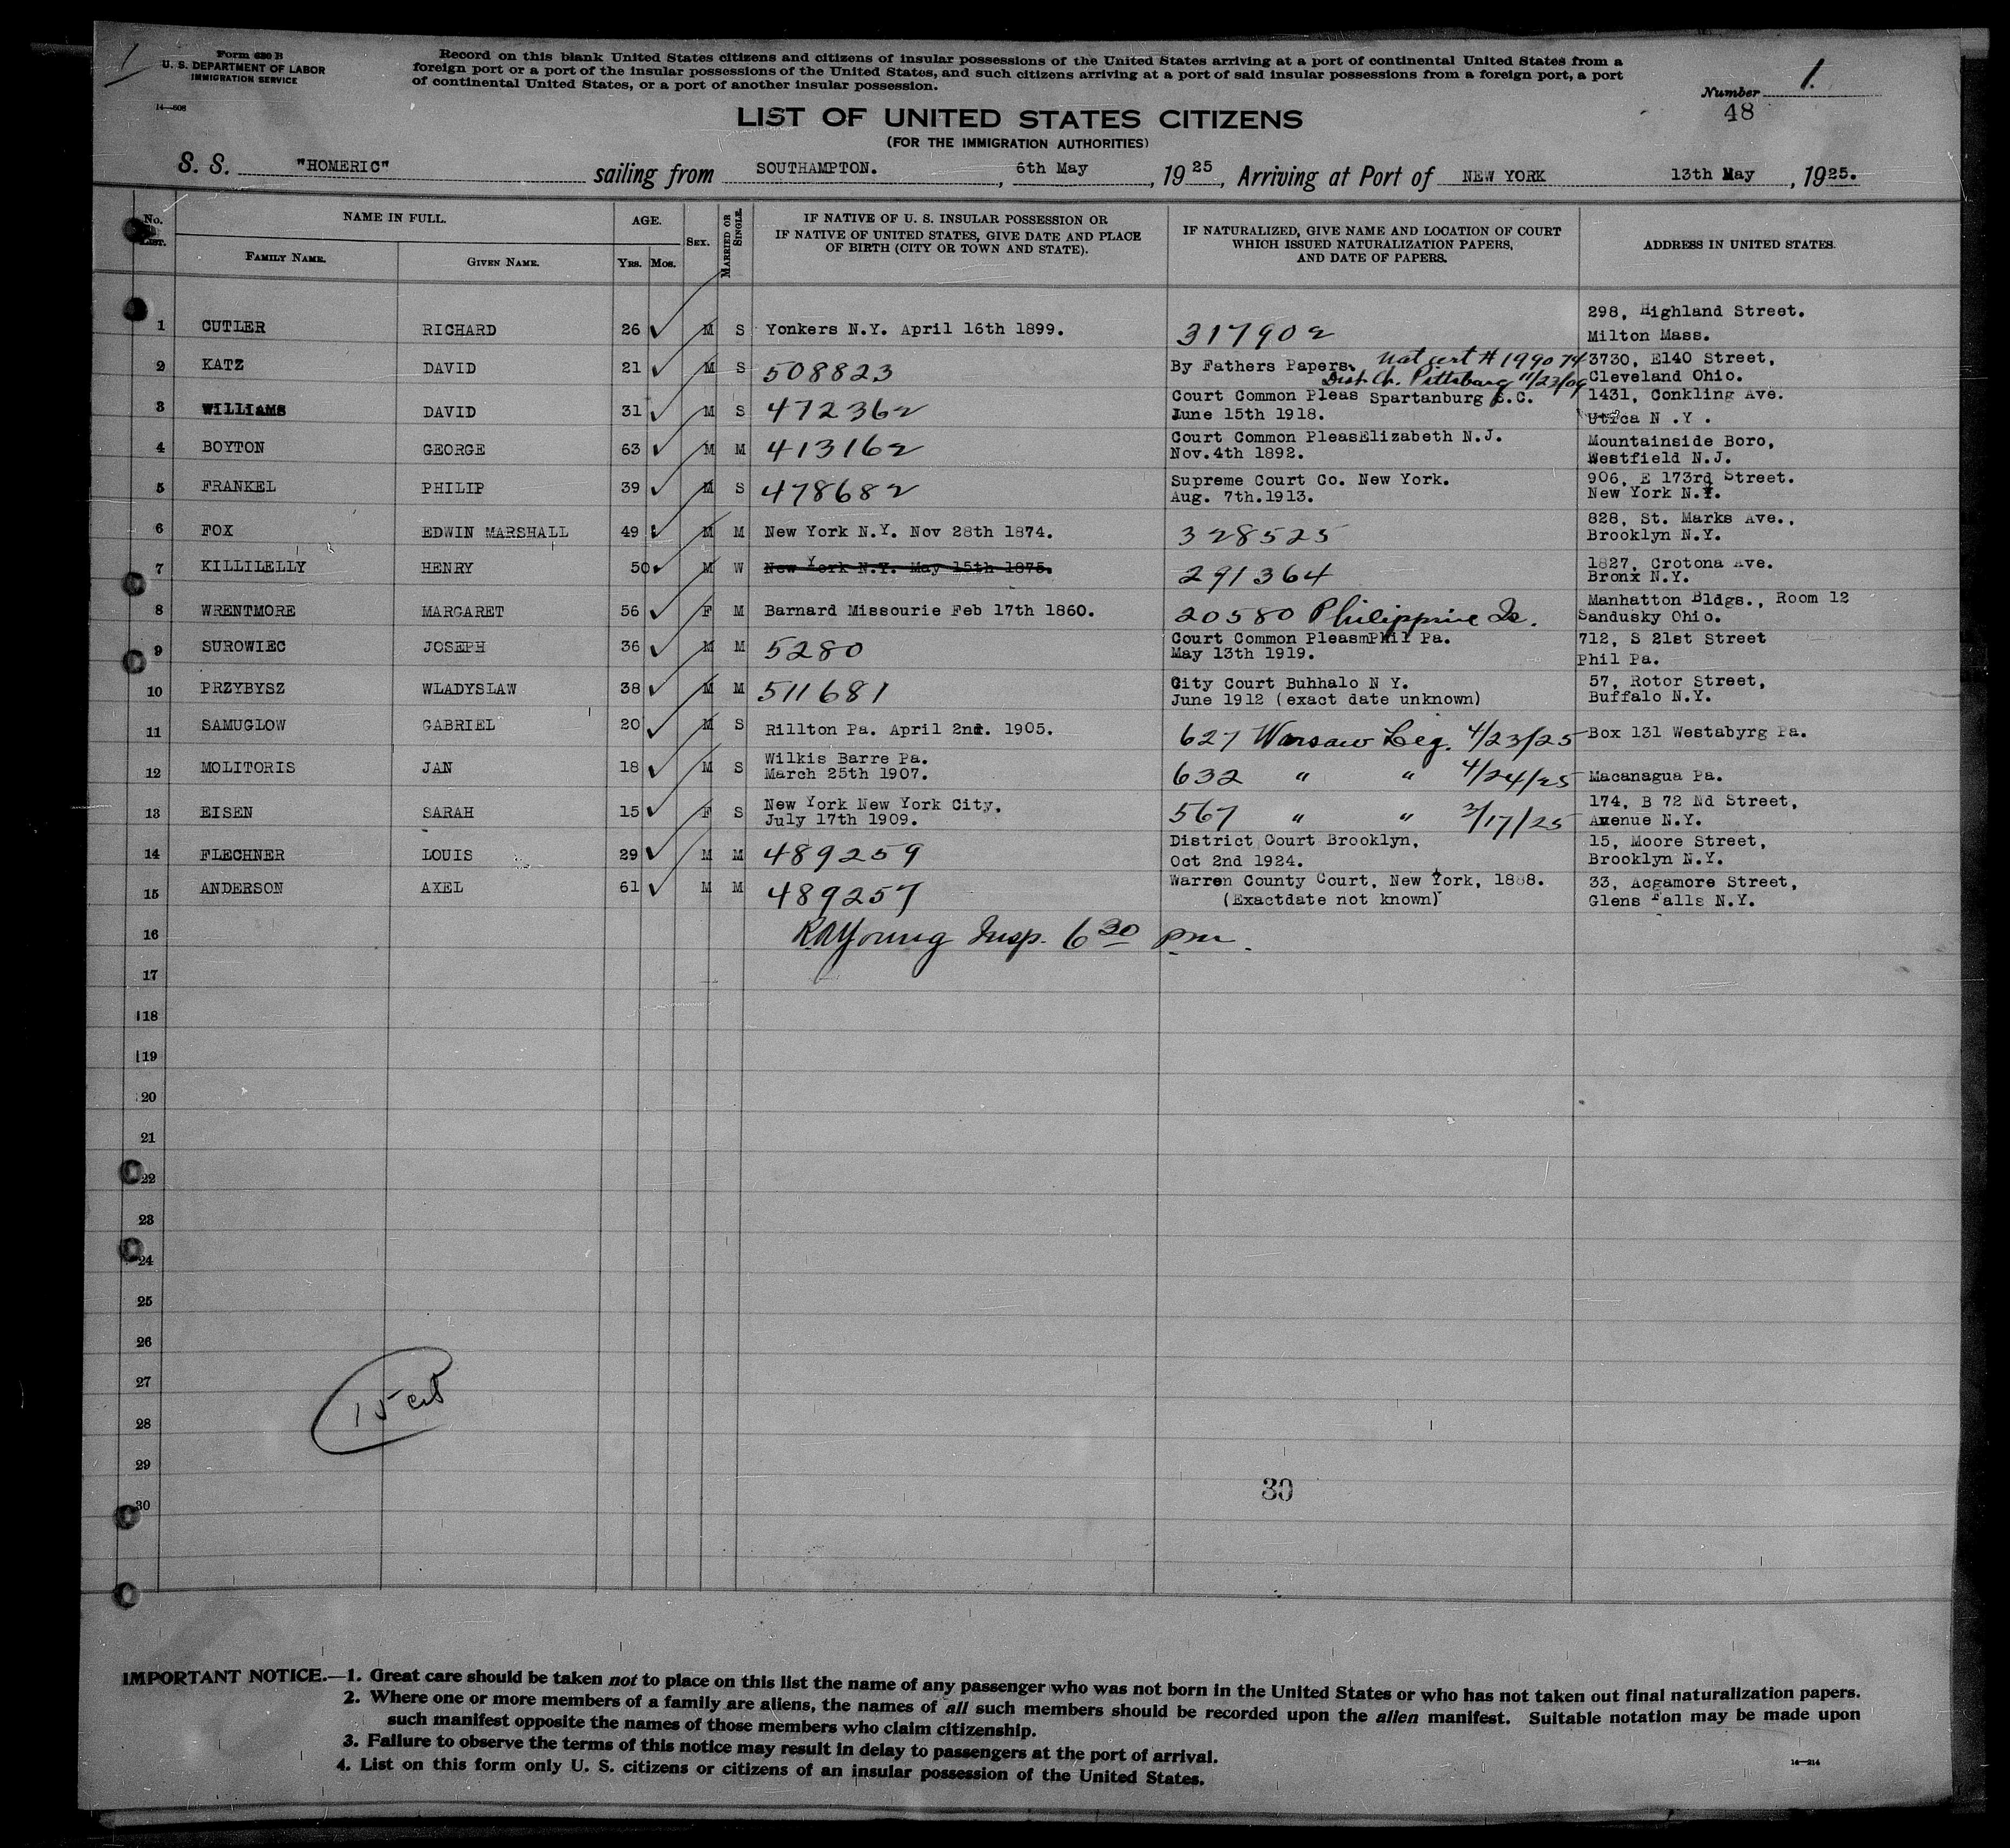 1
Form 630 B
U. S. DEPARTMENT OF LABOR
IMMIGRATION SERVICE
14—606
Record on this blank United States citizens and citizens of insular possessions of the United States arriving at a port of continental United States from a
foreign port or a port of the insular possessions of the United States, and such citizens arriving at a port of said insular possessions from a foreign port, a port
of continental United States, or a port of another insular possession.
Number 1.
48
LIST OF UNITED STATES CITIZENS
(FOR THE IMMIGRATION AUTHORITIES)
S. S. "HOMERIC" sailing from SOUTHAMPTON. , 6th May , 1925 , Arriving at Port of NEW YORK 13th May , 1925.
No. List. NAME IN FULL. AGE. Sex. MARRIED OR SINGLE. IF NATIVE OF U. S. INSULAR POSSESSION OR IF NATIVE OF UNITED STATES, GIVE DATE AND PLACE OF BIRTH (CITY OR TOWN AND STATE). IF NATURALIZED, GIVE NAME AND LOCATION OF COURT WHICH ISSUED NATURALIZATION PAPERS, AND DATE OF PAPERS. ADDRESS IN UNITED STATES.
FAMILY NAME. GIVEN NAME. YRS. MOS.
298, Highland Street.
1 CUTLER RICHARD 26 M S Yonkers N.Y. April 16th 1899. 317902 Milton Mass.
2 KATZ DAVID 21 M S 508823 By Fathers Papers. Nat cert # 199074 3730, E140 Street,
Dist. Ct. Pittsburg 11/23/09 Cleveland Ohio.
3 WILLIAMS DAVID 31 M S 472362 Court Common Pleas Spartanburg S.C. 1431, Conkling Ave.
June 15th 1918. Utica N .Y .
4 BOYTON GEORGE 63 M M 413162 Court Common PleasElizabeth N.J. Mountainside Boro,
Nov.4th 1892. Westfield N.J.
5 FRANKEL PHILIP 39 M S 478682 Supreme Court Co. New York. 906, E 173rd Street.
Aug. 7th.1913. New York N.Y.
6 FOX EDWIN MARSHALL 49 M M New York N.Y. Nov 28th 1874. 328525 828, St. Marks Ave.,
Brooklyn N.Y.
7 KILLILELLY HENRY 50 M W New York N.Y. May 15th 1875. 291364 1827, Crotona Ave.
Bronx N.Y.
8 WRENTMORE MARGARET 56 F M Barnard Missourie Feb 17th 1860. 20580 Philippine Is. Manhatton Bldgs., Room 12
Sandusky Ohio.
9 SUROWIEC JOSEPH 36 M M 5280 Court Common PleasmPhil Pa. 712, S 21st Street
May 13th 1919. Phil Pa.
10 PRZYBYSZ WLADYSLAW 38 M M 511681 City Court Buhhalo N Y. 57, Rotor Street,
June 1912 (exact date unknown) Buffalo N.Y.
11 SAMUGLOW GABRIEL 20 M S Rillton Pa. April 2nd. 1905. 627 Warsaw Leg. 4/23/25 Box 131 Westabyrg Pa.
12 MOLITORIS JAN 18 M S Wilkis Barre Pa.
March 25th 1907. 632 " " 4/24/25 Macanagua Pa.
13 EISEN SARAH 15 F S New York New York City, 174, B 72 Nd Street,
July 17th 1909. 567 " " 3/17/25 Avenue N.Y.
14 FLECHNER LOUIS 29 M M 489259 District Court Brooklyn, 15, Moore Street,
Oct 2nd 1924. Brooklyn N.Y.
15 ANDERSON AXEL 61 M M 489257 Warren County Court, New York, 1888. 33, Acgamore Street,
(Exactdate not known) Glens Falls N.Y.
16 RAYoung Insp. 6 30 pm.
17
18
19
20
21
22
23
24
25
26
27
15 cit
28
29
30
30
IMPORTANT NOTICE.—1. Great care should be taken not to place on this list the name of any passenger who was not born in the United States or who has not taken out final naturalization papers.
2. Where one or more members of a family are aliens, the names of all such members should be recorded upon the alien manifest. Suitable notation may be made upon
such manifest opposite the names of those members who claim citizenship.
3. Failure to observe the terms of this notice may result in delay to passengers at the port of arrival.
4. List on this form only U. S. citizens or citizens of an insular possession of the United States.
14—214